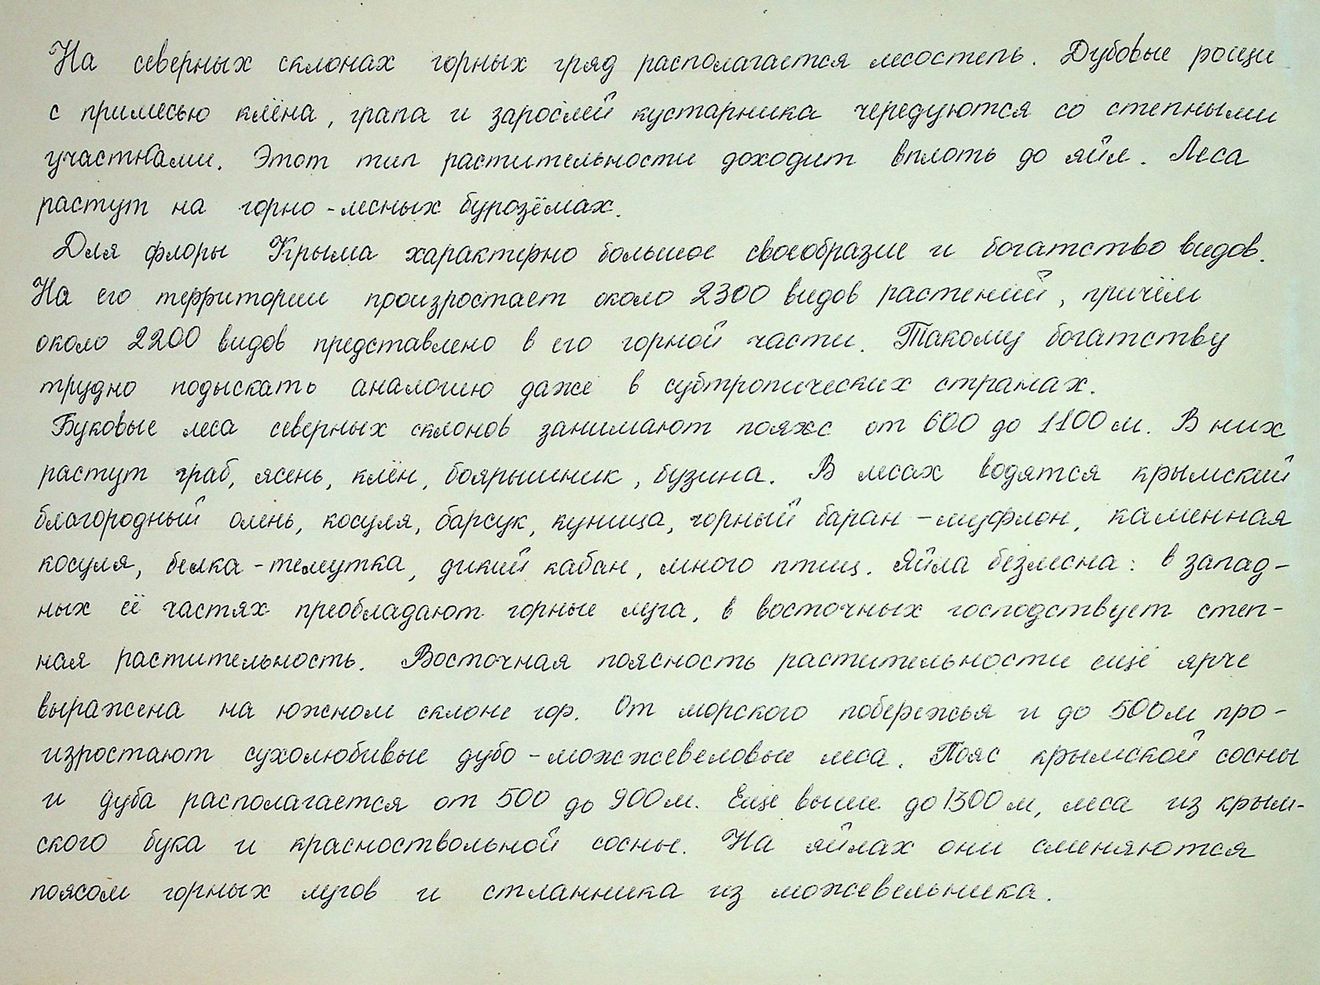 На северных склонах горных гряд располагается лесостепь. Дубовые рощи
с примесью клёна, грапа и зарослей кустарника чередуются со степными
участками. Этот тип растительности доходит вплоть до яйл. Леса
растут на горно-лесных бурозёмах.
Для флоры Крыма характерно большое своеобразие и богатство видов.
На его территории произростает около 2300 видов растений, причём
около 2200 видов представлено в его горной части. Такому богатству
трудно подыскать аналогию даже в субтропических странах.
Буковые леса северных склонов занимают пояжс от 600 до 1100 м. В них
растут граб, ясень, клён, боярышник, бузина. В лесах водятся крымский
благородный олень, косуля, барсук, куница, горный баран - муфлон, каменная
косуля, белка-телеутка, дикий кабан, много птиц. Яйла безлесна: в запад-
ных её частях преобладают горные луга, в восточных господствует степ-
ная растительность. Восточная поясность растительности ещё ярче
выражена на южном склоне гор. От морского побережья и до 500м про-
изростают сухолюбивые дубо-можжевеловые леса. Пояс крымской сосны
и дуба располагается от 500 до 900м. Еще выше до 1300 м, леса из крым-
ского бука и красноствольной сосны. На яйлах они сменяются
поясом горных лугов и стланника из можевельника.